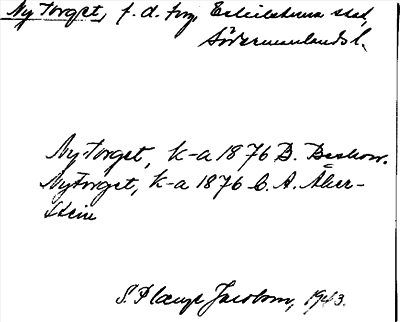 Nytorget, f. d. torg, Eskilstuna stad,
Södermanlands l.
Nytorget, k-a 1876 B. Beskow.
Nytorget, k-a 1876 C. A. Åker-
stein
S. Plaenge Jacobson, 1943.